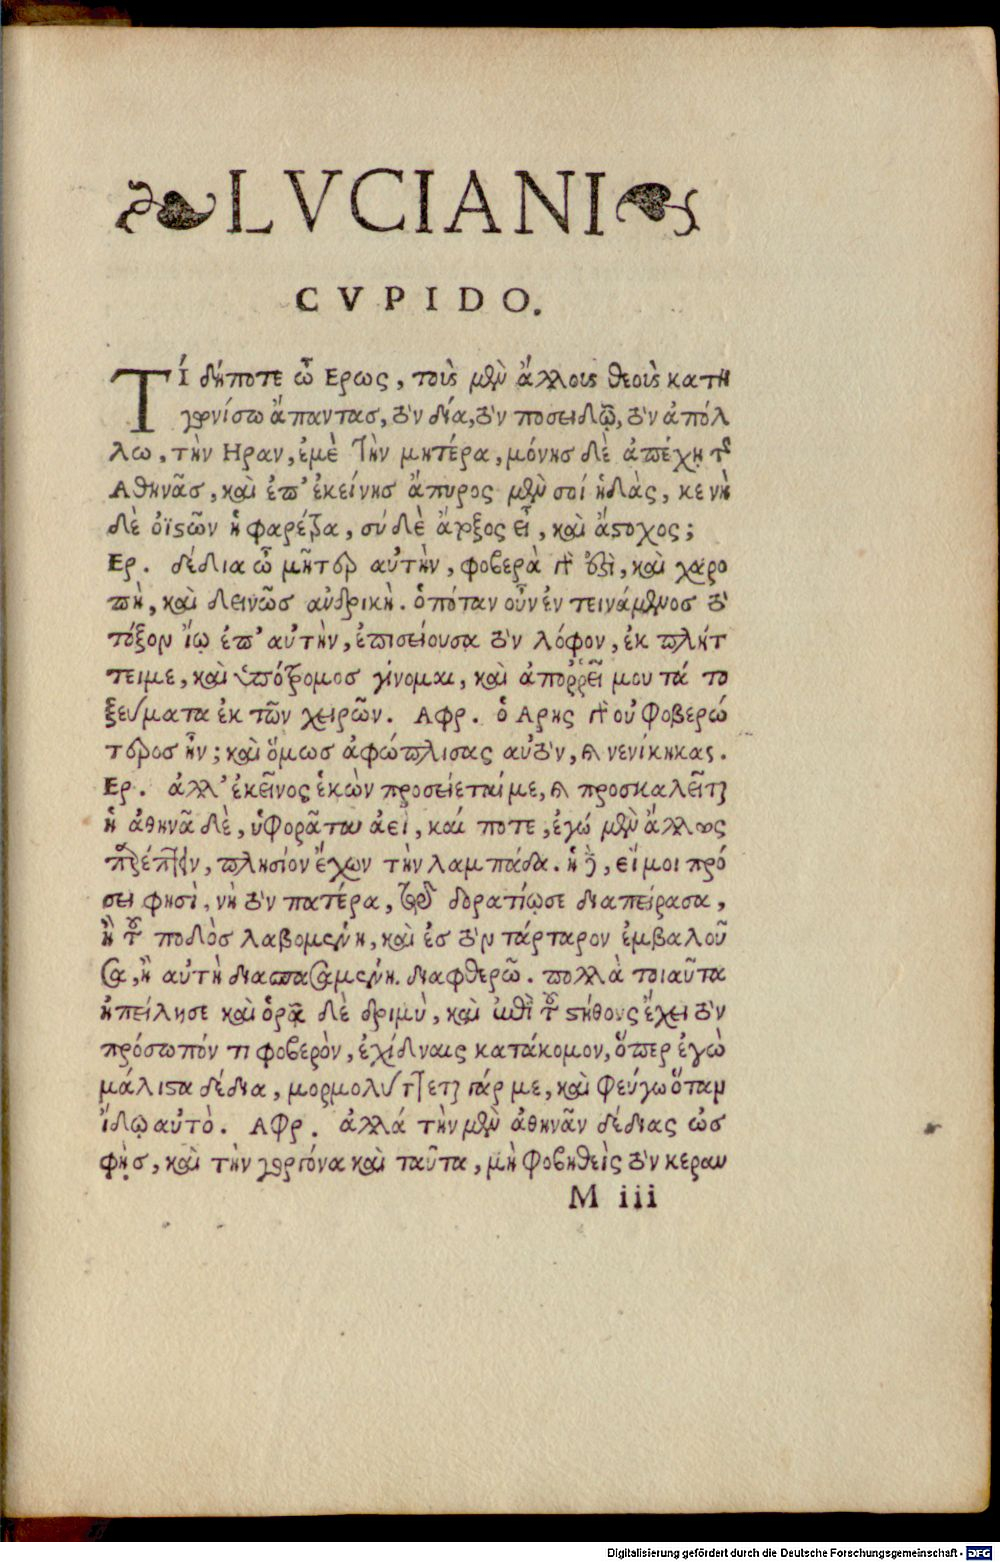 LVCIANI
CVPIDO.
Τί δήποτε ὦ Ερως, τοὺς μὲν ἄλλους θεοὺς κατη
γωνίσω ἅπαντας, τὸν δία, τὸν ποσειδῶ, τὸν ἀπόλ
λω, τὴν Ηραν, ἐμὲ τὴν μητέρα, μόνης δὲ ἀπέχῃ τῆς
Αθηνᾶς, καὶ ἐπ' ἐκείνης ἄπυρος μὲν σοί ἡ δὰς, κενὴ
δὲ ὀϊστῶν ἡ φαρέτρα, σύ δὲ ἄτοξος εἶ, καὶ ἄστοχος;
Ερ. δέδια ὦ μῆτερ αὐτὴν, φοβερὰ γάρ ἐστὶ, καὶ χαρο
πὴ, καὶ δεινῶς ἀνδρικὴ. ὁπόταν οὖν ἐντεινάμενος τὸ
τόξον ἴω ἐπ' αὐτὴν, ἐπισείουσα τὸν λόφον, ἐκπλήτ
τει με, καὶ ὑπότρομος γίνομαι, καὶ ἀποῤῥεῖ μου τά το
ξεύματα ἐκ τῶν χειρῶν. Αφρ. ὁ Αρης γάρ οὐ φοβερώ
τερος ἦν; καὶ ὅμως ἀφώπλισας αὐτὸν, καὶ νενίκηκας.
Ερ. ἀλλ' ἐκεῖνος ἑκὼν προσίεταί με, καὶ προσκαλεῖται
ἡ ἀθηνᾶ δὲ, ὑφορᾶται ἀεὶ, καί ποτε, ἐγώ μὲν ἄλλως
παρέπτην, πλησίον ἔχων τὴν λαμπάδα. ἡ δὲ, εἴ μοι πρό
σει φησὶ, νὴ τὸν πατέρα, τῷ δορατίῳ σε διαπείρασα,
ἢ τοῦ ποδὸς λαβομένη, καὶ ἐς τὸν τάρταρον ἐμβαλοῦ
σα, ἢ αὐτὴ διασπασαμένη. διαφθερῶ. πολλὰ τοιαῦτα
ἠπείλησε καὶ ὁρᾷ δὲ δριμὺ, καὶ ἐπὶ τοῦ στήθους ἔχει τὸν
πρόσωπόν τι φοβερὸν, ἐχίδναις κατάκομον, ὅπερ ἐγὼ
μάλιστα δέδια, μορμολύττεται γάρ με, καὶ φεύγω ὅταν
ἴδω αὐτὸ. Αφρ. ἀλλά τὴν μὲν ἀθηνᾶν δέδιας ὡς
φῂς, καὶ τὴν γοργόνα καὶ ταῦτα, μὴ φοβηθεὶς τὸν κεραυ
M iii
Digitalisierung gefördert durch die Deutsche Forschungsgemeinschaft - DFG